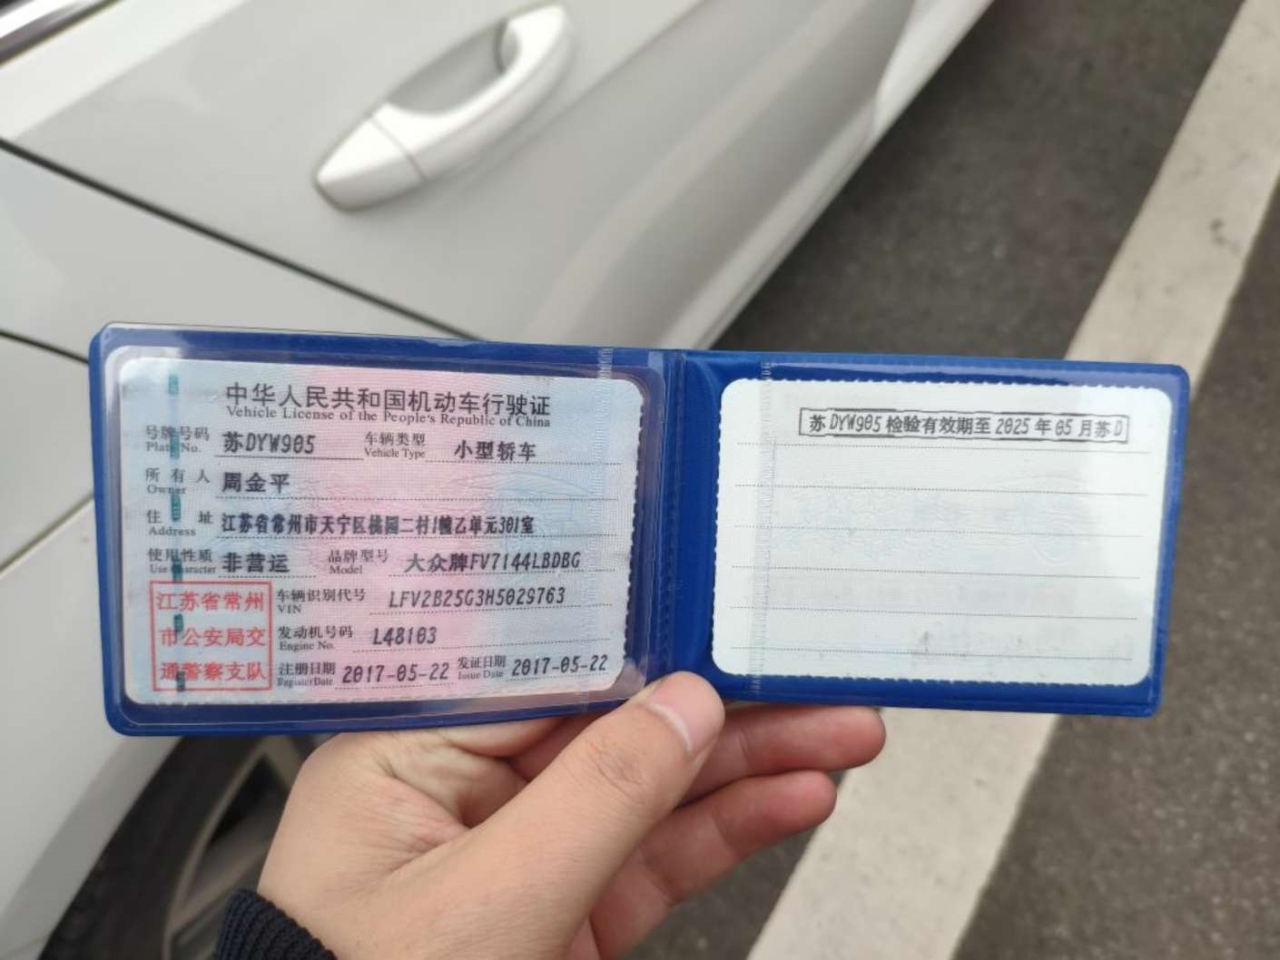 中华人民共和国机动车行驶证
Vehicle License of the People's Republic of China
号牌号码 苏DYW905 车辆类型 小型轿车
Plate No. Vehicle Type
所有人 周金平
Owner
住址 江苏省常州市天宁区桃园二村1幢乙单元301室
Address
使用性质 非营运 品牌型号 大众牌FV7144LBDBG
Use Character Model
江苏省常州
市公安局交
通警察支队
车辆识别代号 LFV2B25G3H5029763
VIN
发动机号码 L48103
Engine No.
注册日期 2017-05-22 发证日期 2017-05-22
Register Date Issue Date
苏DYW905检验有效期至2025年05月苏D